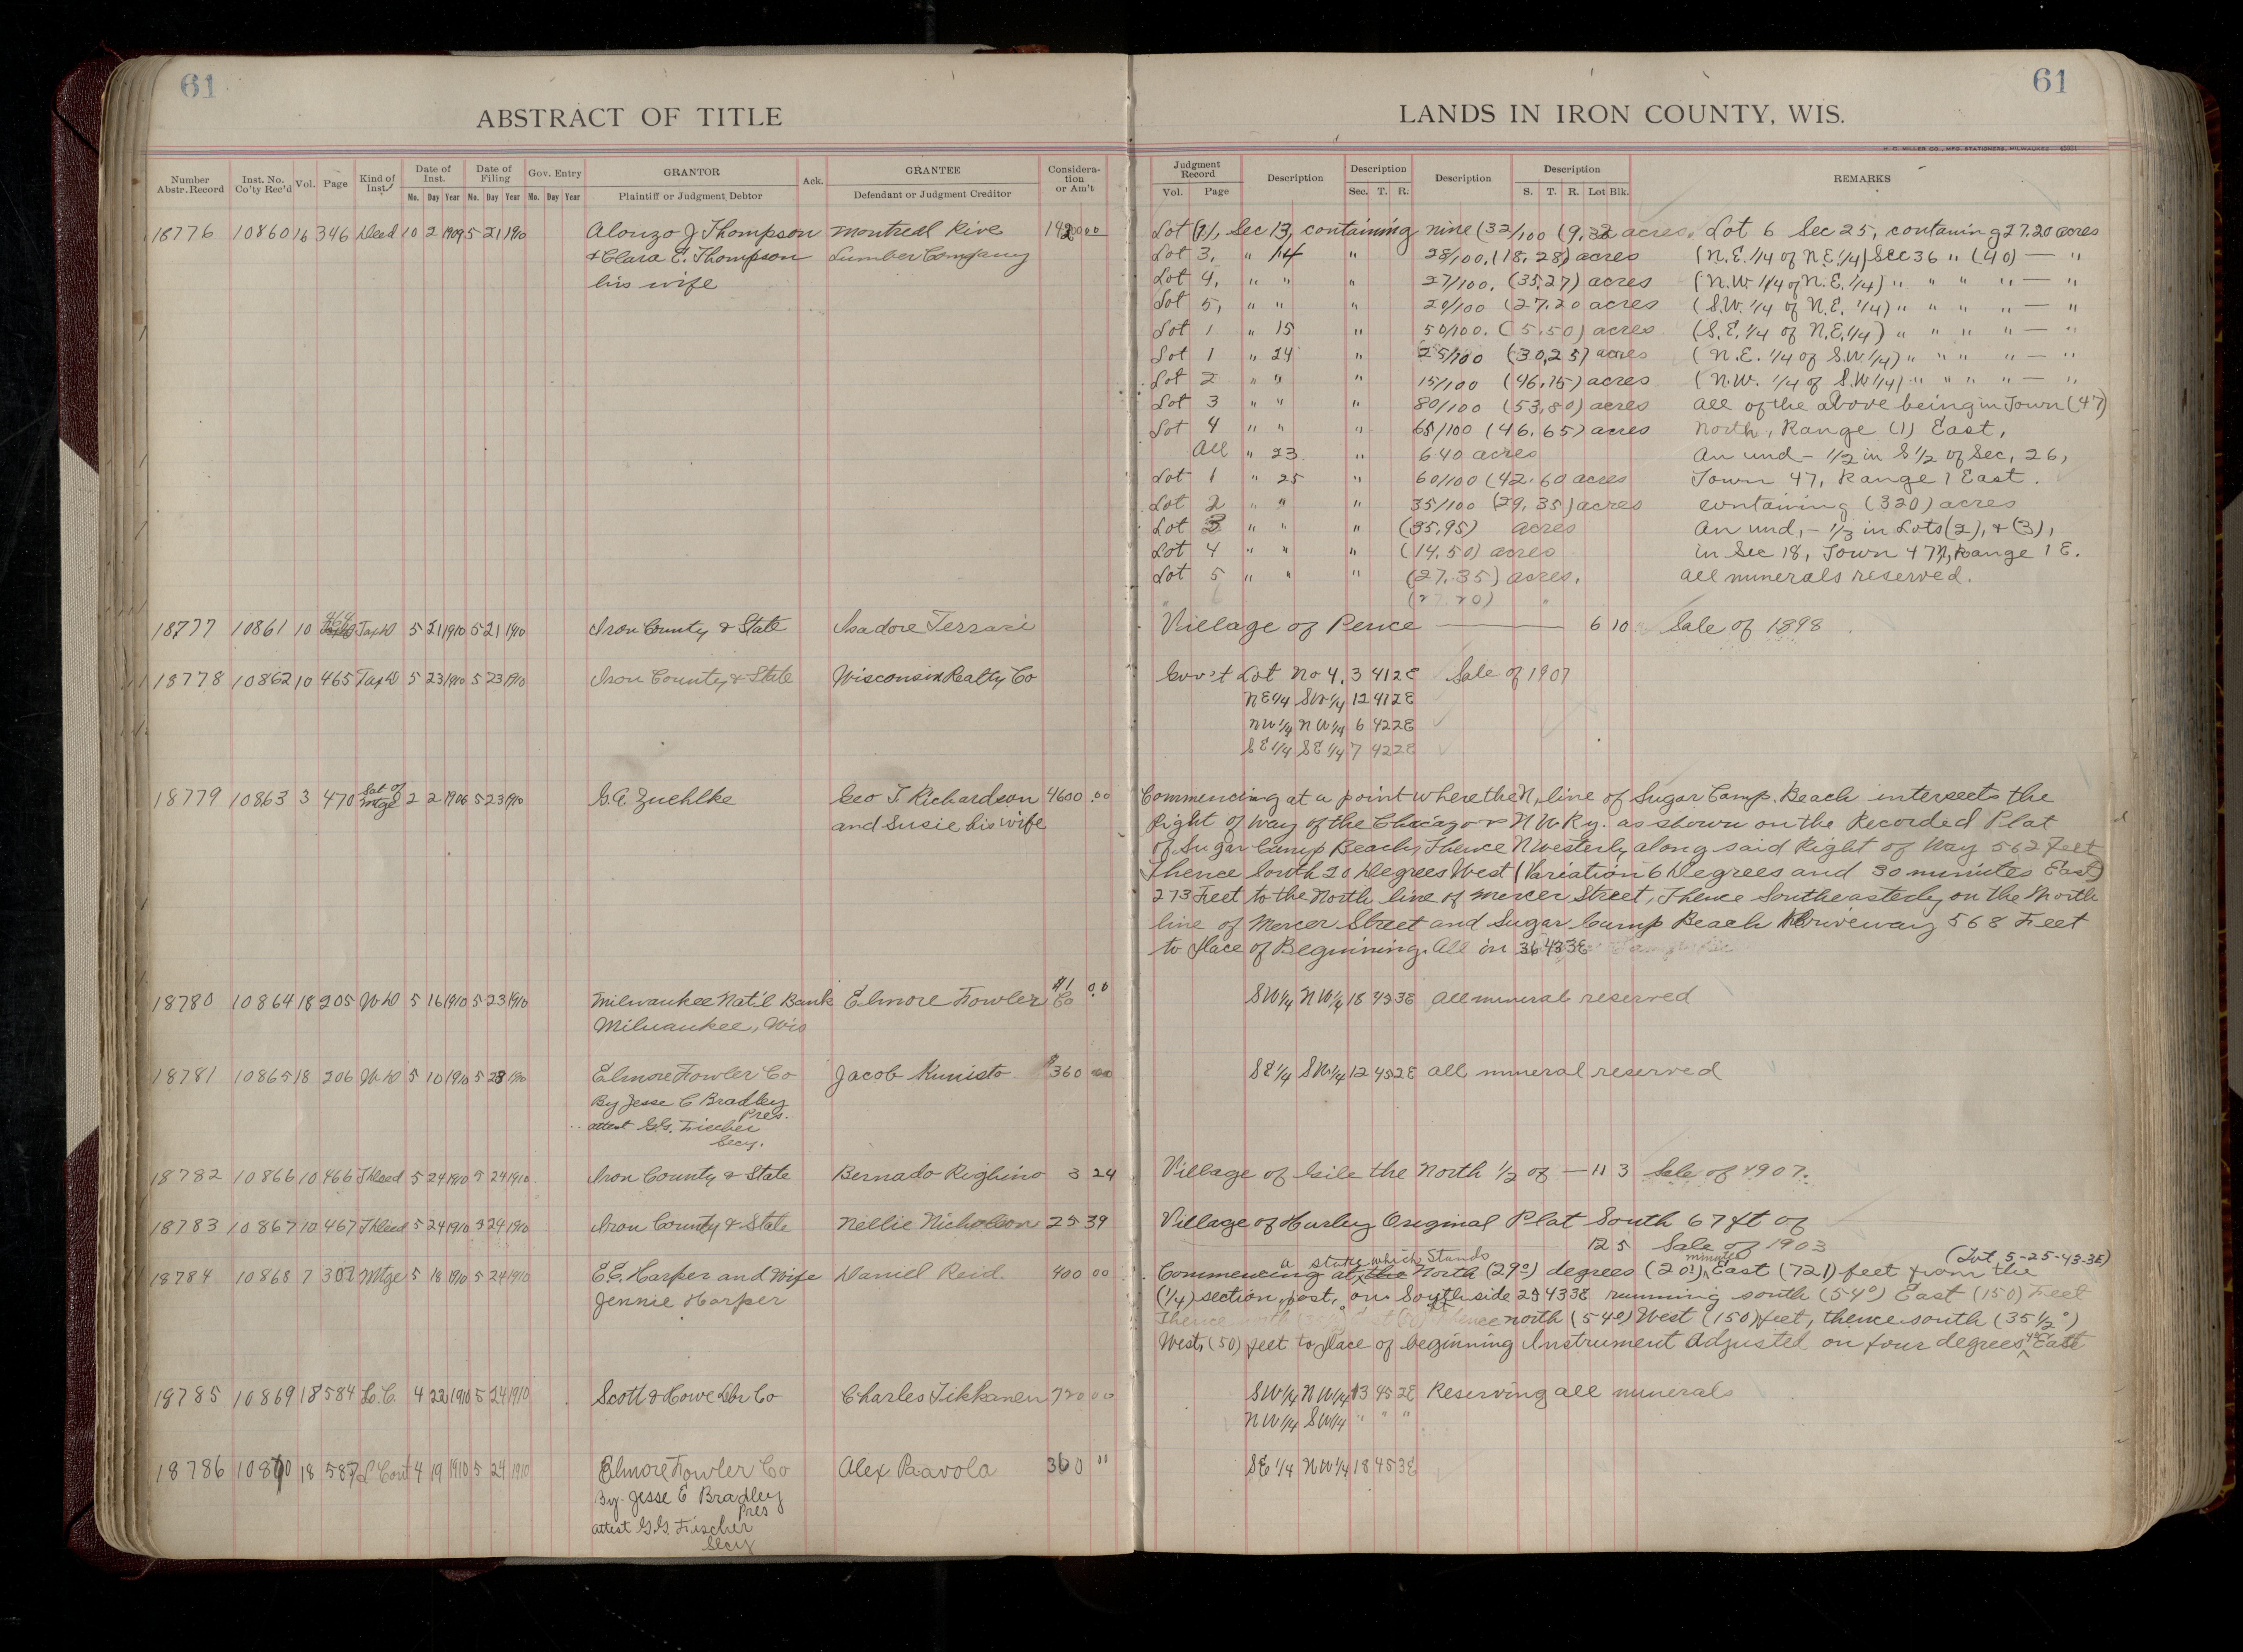 61
61
ABSTRACT OF TITLE
LANDS IN IRON COUNTY, WIS.
H. C. MILLER CO., MFG. STATIONERS, MILWAUKEE
Number Abstr. Record Inst. No. Co'ty Rec'd Vol. Page Kind of Inst. Date of Inst. Date of Filing Gov. Entry GRANTOR Ack. GRANTEE Considera-tion or Am't
Mo. Day Year Mo. Day Year Mo. Day Year Plaintiff or Judgment Debtor Defendant or Judgment Creditor
Judgment Record Description Description Description Description REMARKS
Vol. Page Sec. T. R. S. T. R. Lot Blk.
18776 10860 16 346 Deed 10 2 1909 5 21 1910 Alonzo J Thompson Montreal Rive
& Clara E. Thompson Lumber Company
his wife
Lot (1), Sec 13, containing nine (32/100 (9.32 acres. Lot 6 Sec 25, containing 27.20 acres
Lot 3, " 14 " 28/100, (18,28) acres (N.E. 1/4 of N.E. 1/4) Sec 36 " (40) — "
Lot 4, " " " 27/100. (35.27) acres (N.W. 1/4 of N.E. 1/4) " " " " — "
Lot 5, " " " 20/100 (27.20 acres (S.W. 1/4 of N.E. 1/4) " " " " — "
Lot 1 " 15 " 50/100. (5.50) acres (S.E. 1/4 of N.E. 1/4) " " " " — "
Lot 1 " 24 " 25/100 (30,25) acres (N.E. 1/4 of S.W 1/4) " " " " — "
Lot 2 " " " 15/100 (46,15) acres (N.W. 1/4 of S.W 1/4) " " " " — "
Lot 3 " " " 80/100 (53,80) acres all of the above being in Town (47)
Lot 4 " " " 65/100 (46.65) acres North, Range (1) East,
All " 23 " 640 acres An und - 1/2 in S 1/2 of Sec, 26,
Lot 1 " 25 " 60/100 (42.60 acres Town 47, Range 1 East.
Lot 2 " " " 35/100 (29,35) acres containing (320) acres
Lot 3 " " " (35,95) acres An und, - 1/3 in Lots (2), & (3),
Lot 4 " " " (14.50) acres in Sec 18, Town 47 N, Range 1 E.
Lot 5 " " " (27.35) acres. All minerals reserved.
" 6 (27.20) "
18777 10861 10 464 Tax D 5 21 1910 5 21 1910 Iron County & State Isadore Ferrari Village of Pence 6 10 Sale of 1898
18778 10862 10 465 Tax D 5 23 1910 5 23 1910 Iron County & State Wisconsin Realty Co Gov't Lot No 4, 3 41 2E Sale of 1907
NE 1/4 SW 1/4 12 41 2E
NW 1/4 NW 1/4 6 42 2E
SE 1/4 SE 1/4 7 42 2E
18779 10863 3 470 Sat of Mtge 2 2 1906 5 23 1910 G.A. Zuehlke Geo T. Richardson 4600 .00
and Susie his wife
Commencing at a point where the N, line of Sugar Camp. Beach intersects the
Right of way of the Chicago & N W Ry. as shown on the Recorded Plat
of Sugar Camp Beach, Thence N Westerly along said Right of Way 562 Feet
Thence South 20 Degrees West (Variation 6 Degrees and 30 minutes East)
273 Feet to the North line of Mercer Street, Thence Southeasterly on the North
line of Mercer Street and Sugar Camp Beach Driveway 568 Feet
to Place of Beginning. All in 36 43 3E
18780 10864 18 205 W D 5 16 1910 5 23 1910 Milwaukee Nat'l Bank Elmore Fowler Co $1 00 SW 1/4 NW 1/4 18 45 3E All mineral reserved
Milwaukee, Wis
18781 10865 18 206 W D 5 10 1910 5 23 1910 Elmore Fowler Co Jacob Kunisto $360 00 SE 1/4 SW 1/4 12 45 2E all mineral reserved
By Jesse C Bradley
Pres.
attest G.G. Fischer
Secy.
18782 10866 10 466 T Deed 5 24 1910 5 24 1910 Iron County & State Bernado Righino 3 24 Village of Gile the North 1/2 of — 11 3 Sale of 1907.
18783 10867 10 467 T Deed 5 24 1910 5 24 1910 Iron County & State Nellie Nicholson 25 39 Village of Hurley Original Plat South 67 ft of
12 5 Sale of 1903
18784 10868 7 307 Mtge 5 18 1910 5 24 1910 E.E. Harper and Wife Daniel Reid. 400 00
Jennie Harper
a stake which Stands minutes (Lot 5-25-43-3E)
Commencing at the North (29°) degrees (20') East (721) feet from the
(1/4) section post, on South side 25 43 3E running south (54°) East (150) Feet
Thence north (54°) West (150) feet, thence south (35 1/2°)
West, (50) feet to place of beginning Instrument Adjusted on four degrees East
18785 10869 18 584 L.C. 4 22 1910 5 24 1910 Scott & Howe Lbr Co Charles Tikkanen 720 00 SW 1/4 NW 1/4 13 45 2E Reserving all minerals
NW 1/4 SW 1/4 " " "
18786 10870 18 587 L Cont 4 19 1910 5 24 1910 Elmore Fowler Co Alex Paavola 360 00 SE 1/4 NW 1/4 18 45 3E
By Jesse E Bradley
Pres
attest G.G. Fischer
Secy